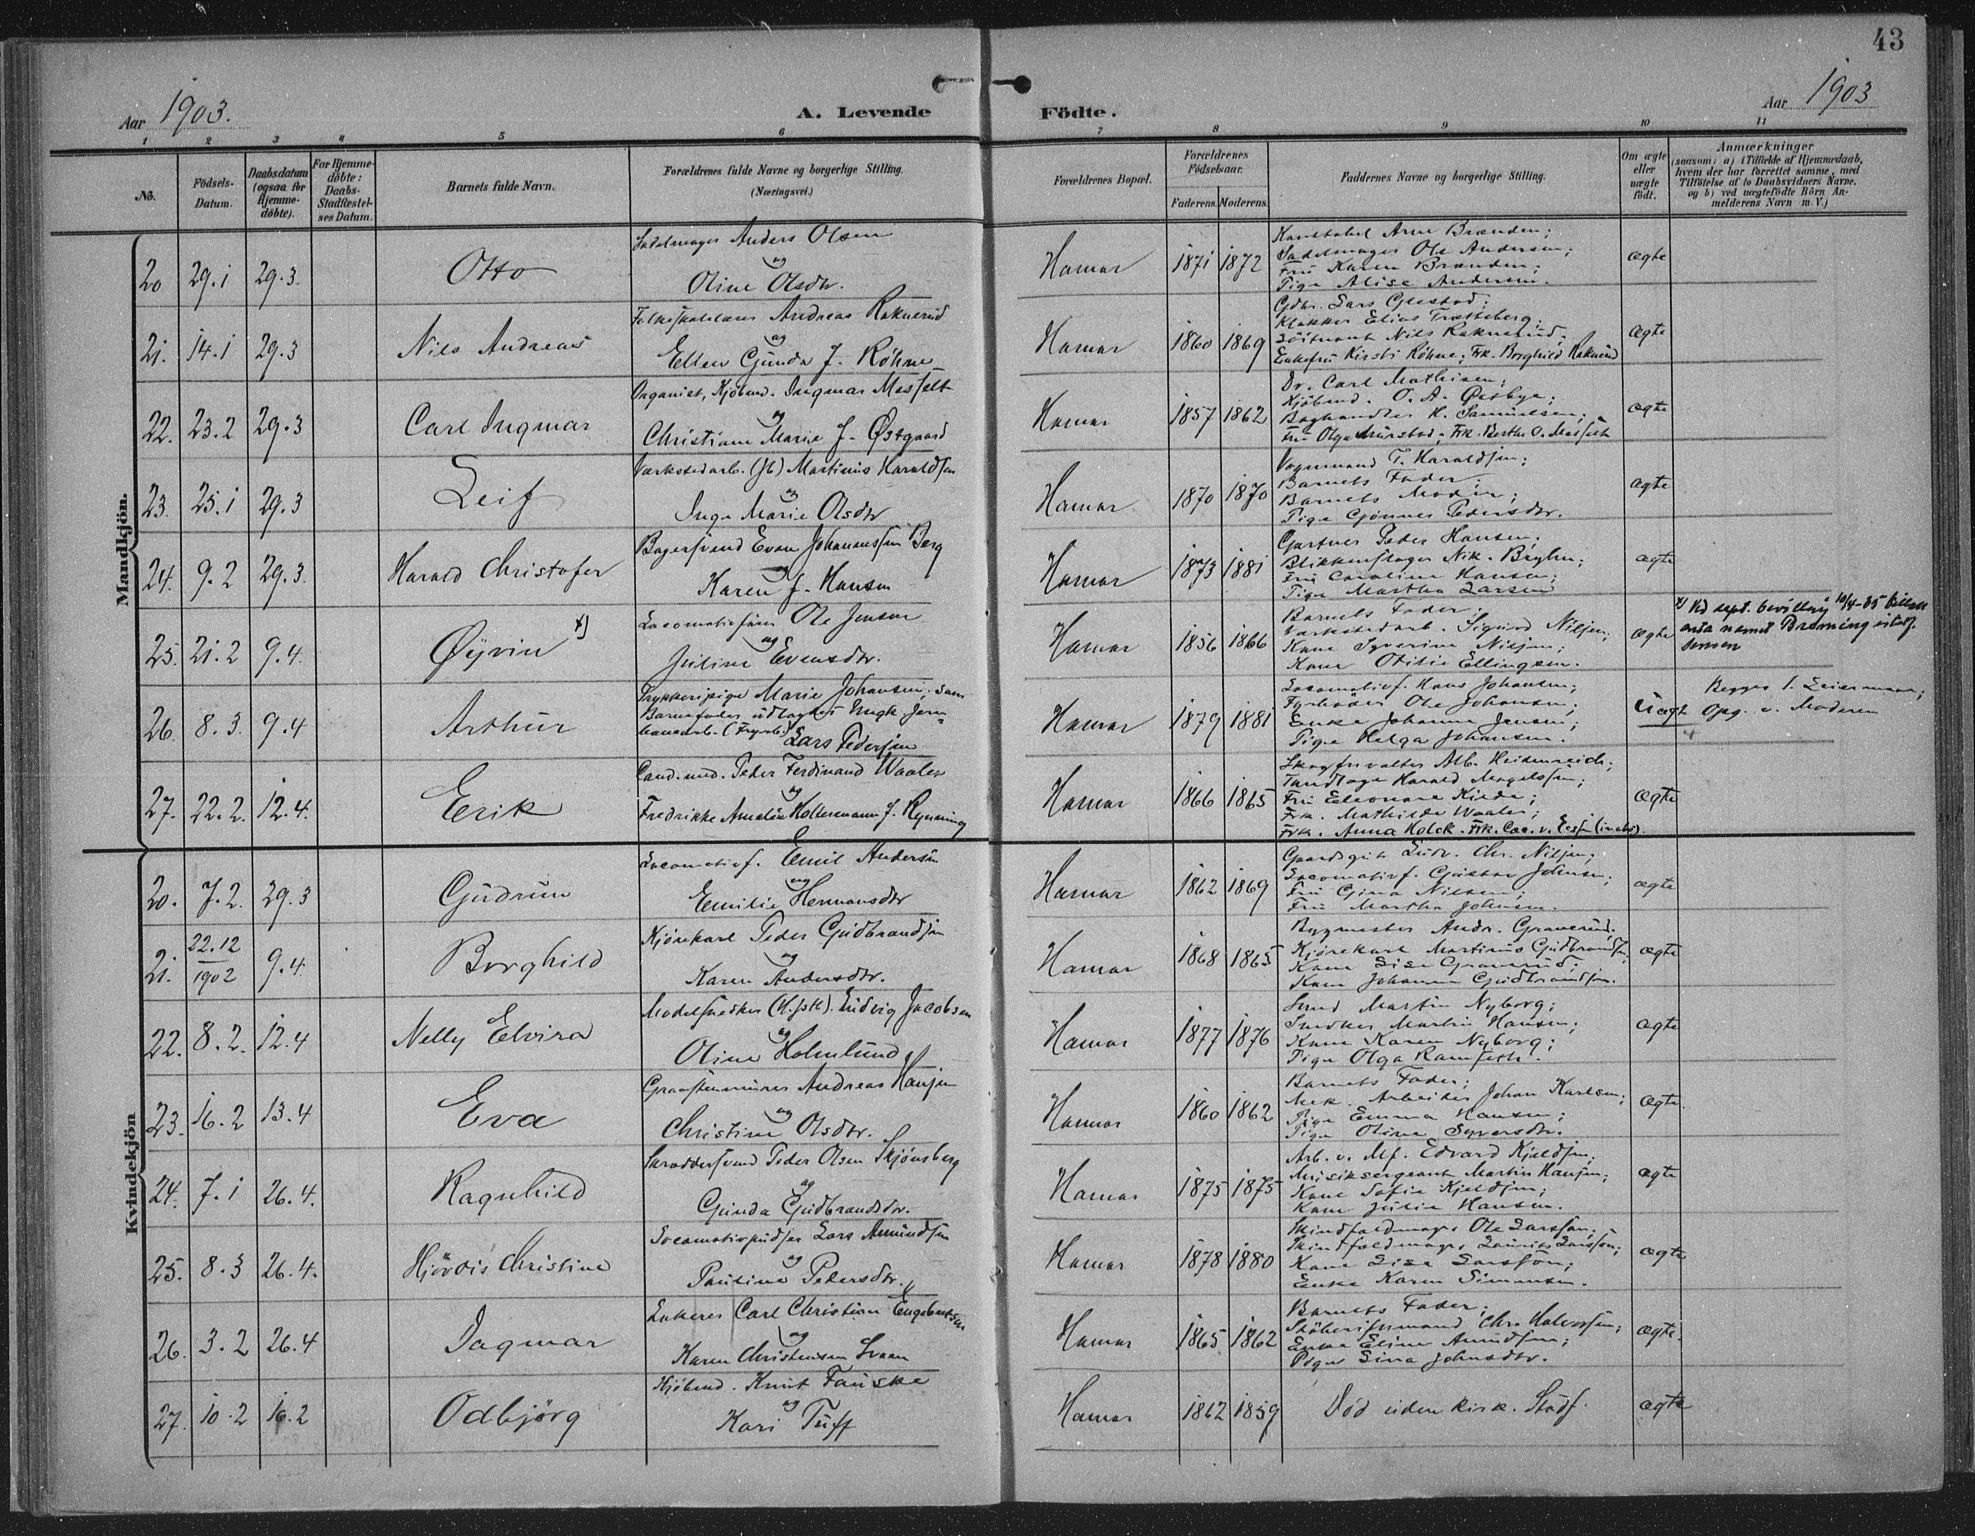 43
Aar 1903.
A. Levende Födte.
Aar 1903
1 2 3 4 5 6 7 8 9 10 11
No.
Födsels-Datum.
Daabsdatum (ogsaa for Hjemme-döbte).
For Hjemme-döbte: Daabs-Stadfæstel-ses Datum.
Barnets fulde Navn.
Forældrenes fulde Navne og borgerlige Stilling. (Næringsvei.)
Forældrenes Bopæl.
Forældrenes Födselsaar.
Faderens. Moderens.
Faddernes Navne og borgerlige Stilling.
Om ægte eller uægte födt.
Anmærkninger
(saasom: a) i Tilfælde af Hjemmedaab,
hvem der har forrettet samme, med
Tilföielse af to Daabsvidners Navne,
og b) ved uægtefödte Börn An-
melderens Navn m. V.)
Mandkjön.
20 29.1 29.3. Otto
Sadelmager Anders Olsen
og
Oline Olsdtr.
Hamar 1871 1872
Konstabel Arne Brænden;
Sadelmager Ole Andersen;
Fru Karen Brænden;
Pige Alise Andersen.
ægte
21. 14.1 29.3 Nils Andreas
Folkeskolelærer Andreas Raknerud
og
Ellen Gunda f. Röhne
Hamar 1860 1869
Gdbr. Lars Gjestad;
Klokker Elias Trætteberg;
Löitnant Nils Raknerud;
Enkefru Kirsti Röhne; Frk. Borghild Raknerud
ægte
22. 23.2 29.3 Carl Ingmar
Organist, Kjöbmd. Ingmar Messelt
og
Christiane Marie f. Østgaard
Hamar 1857 1862
Dr. Carl Mathisen;
Kjöbmd. O. A. Østbye;
Boghandler H. Samuelsen;
Fru Olga; Frk. Berthe O. Messelt
ægte
23. 25.1 29.3 Leif
Værkstedarb. (Jb) Martinus Haraldsen
og
Inge Marie Olsdtr
Hamar 1870 1870
Vognmand T. Haraldsen;
Barnets Fader;
Barnets Moder;
Pige Pedersdtr.
ægte
24. 9.2 29.3. Harald Christofer
Bagersvend Even Johannessen Berg
og
Karen f. Hansen
Hamar 1873 1881
Gartner Peder Hansen;
Blikkenslager Nik.
Fru Caroline Hansen;
Pige Martha Larsen
ægte
25. 21.2 9.4. Øyvin x)
Locomotivförer Ole Jensen
og
Juline Evensdtr.
Hamar 1856 1866
Barnets Fader;
Værkstedarb. Sigurd Nilsen;
Kone Syverine Nilsen;
Kone Otilie Ellingsen.
ægte
x) Ved bevilling 10/4-25
namnet
Jensen
26. 8.3. 9.4 Arthur
Trykkeripige Marie Johansen, som
Barnefader udlagdes Ungk. Jern-
banearb. (Fyrb.) Lars Pedersen
Hamar 1879 1881
Locomotivf. Hans Johansen;
Fyrböder Ole Johansen;
Enke Johanne Jensen;
Pige Helga Johansen.
Uægte
4
Begges 1. Leiermaal;
Opg. v. Moderen
27. 22.2. 12.4. Eerik
Cand. med. Peder Ferdinand Waaler
og
Fredrikke Amalie Holtermann f. Rynning
Hamar 1866 1865
Skogforvalter Alb. Heidenreich;
Tandlæge Harald Magelssen;
Fru Eleonore Kilde;
Frk. Mathilde Waaler;
Frk. Anna Holck. Frk. Car. v.
ægte
Kvindekjön
20. 7.2. 29.3 Gudrun
Locomotivf. Emil Andersen
og
Emilie Hermansdtr
Hamar 1862 1869
Gaardsgut Ludv. Chr. Nilsen;
Locomotivf. Gustav Johnsen;
Fru Gina Nilsen;
Fru Martha Johnsen.
ægte
21. 22.12 1902 9.4. Borghild
Kjörekarl Peder Gudbrandsen
og
Karen Andersdtr.
Hamar 1868 1865
Bygmester Andr. Graverud;
Kjörekarl Martinus Gudbrandsen;
Kone Lise Graverud;
Kone Johanne Gudbrandsen.
ægte
22. 8.2. 12.4 Nelly Elvira
Modelsnedker Ludvig Jacobsen
og
Oline Holmlund
Hamar 1877 1876
Smed Martin Nyborg;
Snedker Martin Hansen;
Kone Karen Nyborg;
Pige Olga Ramseth.
ægte
23. 16.2 13.4 Eva
Graastensmurer Andreas Hansen
og
Christine Olsdtr.
Hamar 1860 1862
Barnets Fader;
Mek. Arbeider Johan Karlsen;
Pige Emma Hansen;
Pige Oline Syversdtr.
ægte.
24. 7.1 26.4. Ragnhild
Skræddersvend Peder Olsen Skjönsberg
og
Gunda Gudbrandsdtr.
Hamar 1875 1875
Arb. v. Mf. Edvard Kjeldsen;
Musiksergeant Martin Hansen;
Kone Sofie Kjeldsen;
Kone Julie Hansen.
ægte
25. 8.3 26.4. Hjördis Christine
Locomotivpudser Lars Amundsen
og
Pauline Pedersdtr.
Hamar 1878 1880
Skindfeldmager Ole Larsson;
Skindfeldmager Laurits Larsson;
Kone Lise Larsson;
Enke Karen Simensen.
ægte
26. 3.2 26.4 Dagmar
Lakerer Carl Christian Engebretsen
og
Karen Christensen Svaen
Hamar 1865 1862
Barnets Fader;
Støberiformand Chr. Halvorsen;
Enke Eline Amundsen;
Pige Sina Johnsdtr.
ægte.
27. 10.2 16.2 Odbjörg
Kjöbmd. Knut Fauske
og
Kari Tuff
Hamar 1862 1859
Död uden kirk. Stadf.
ægte